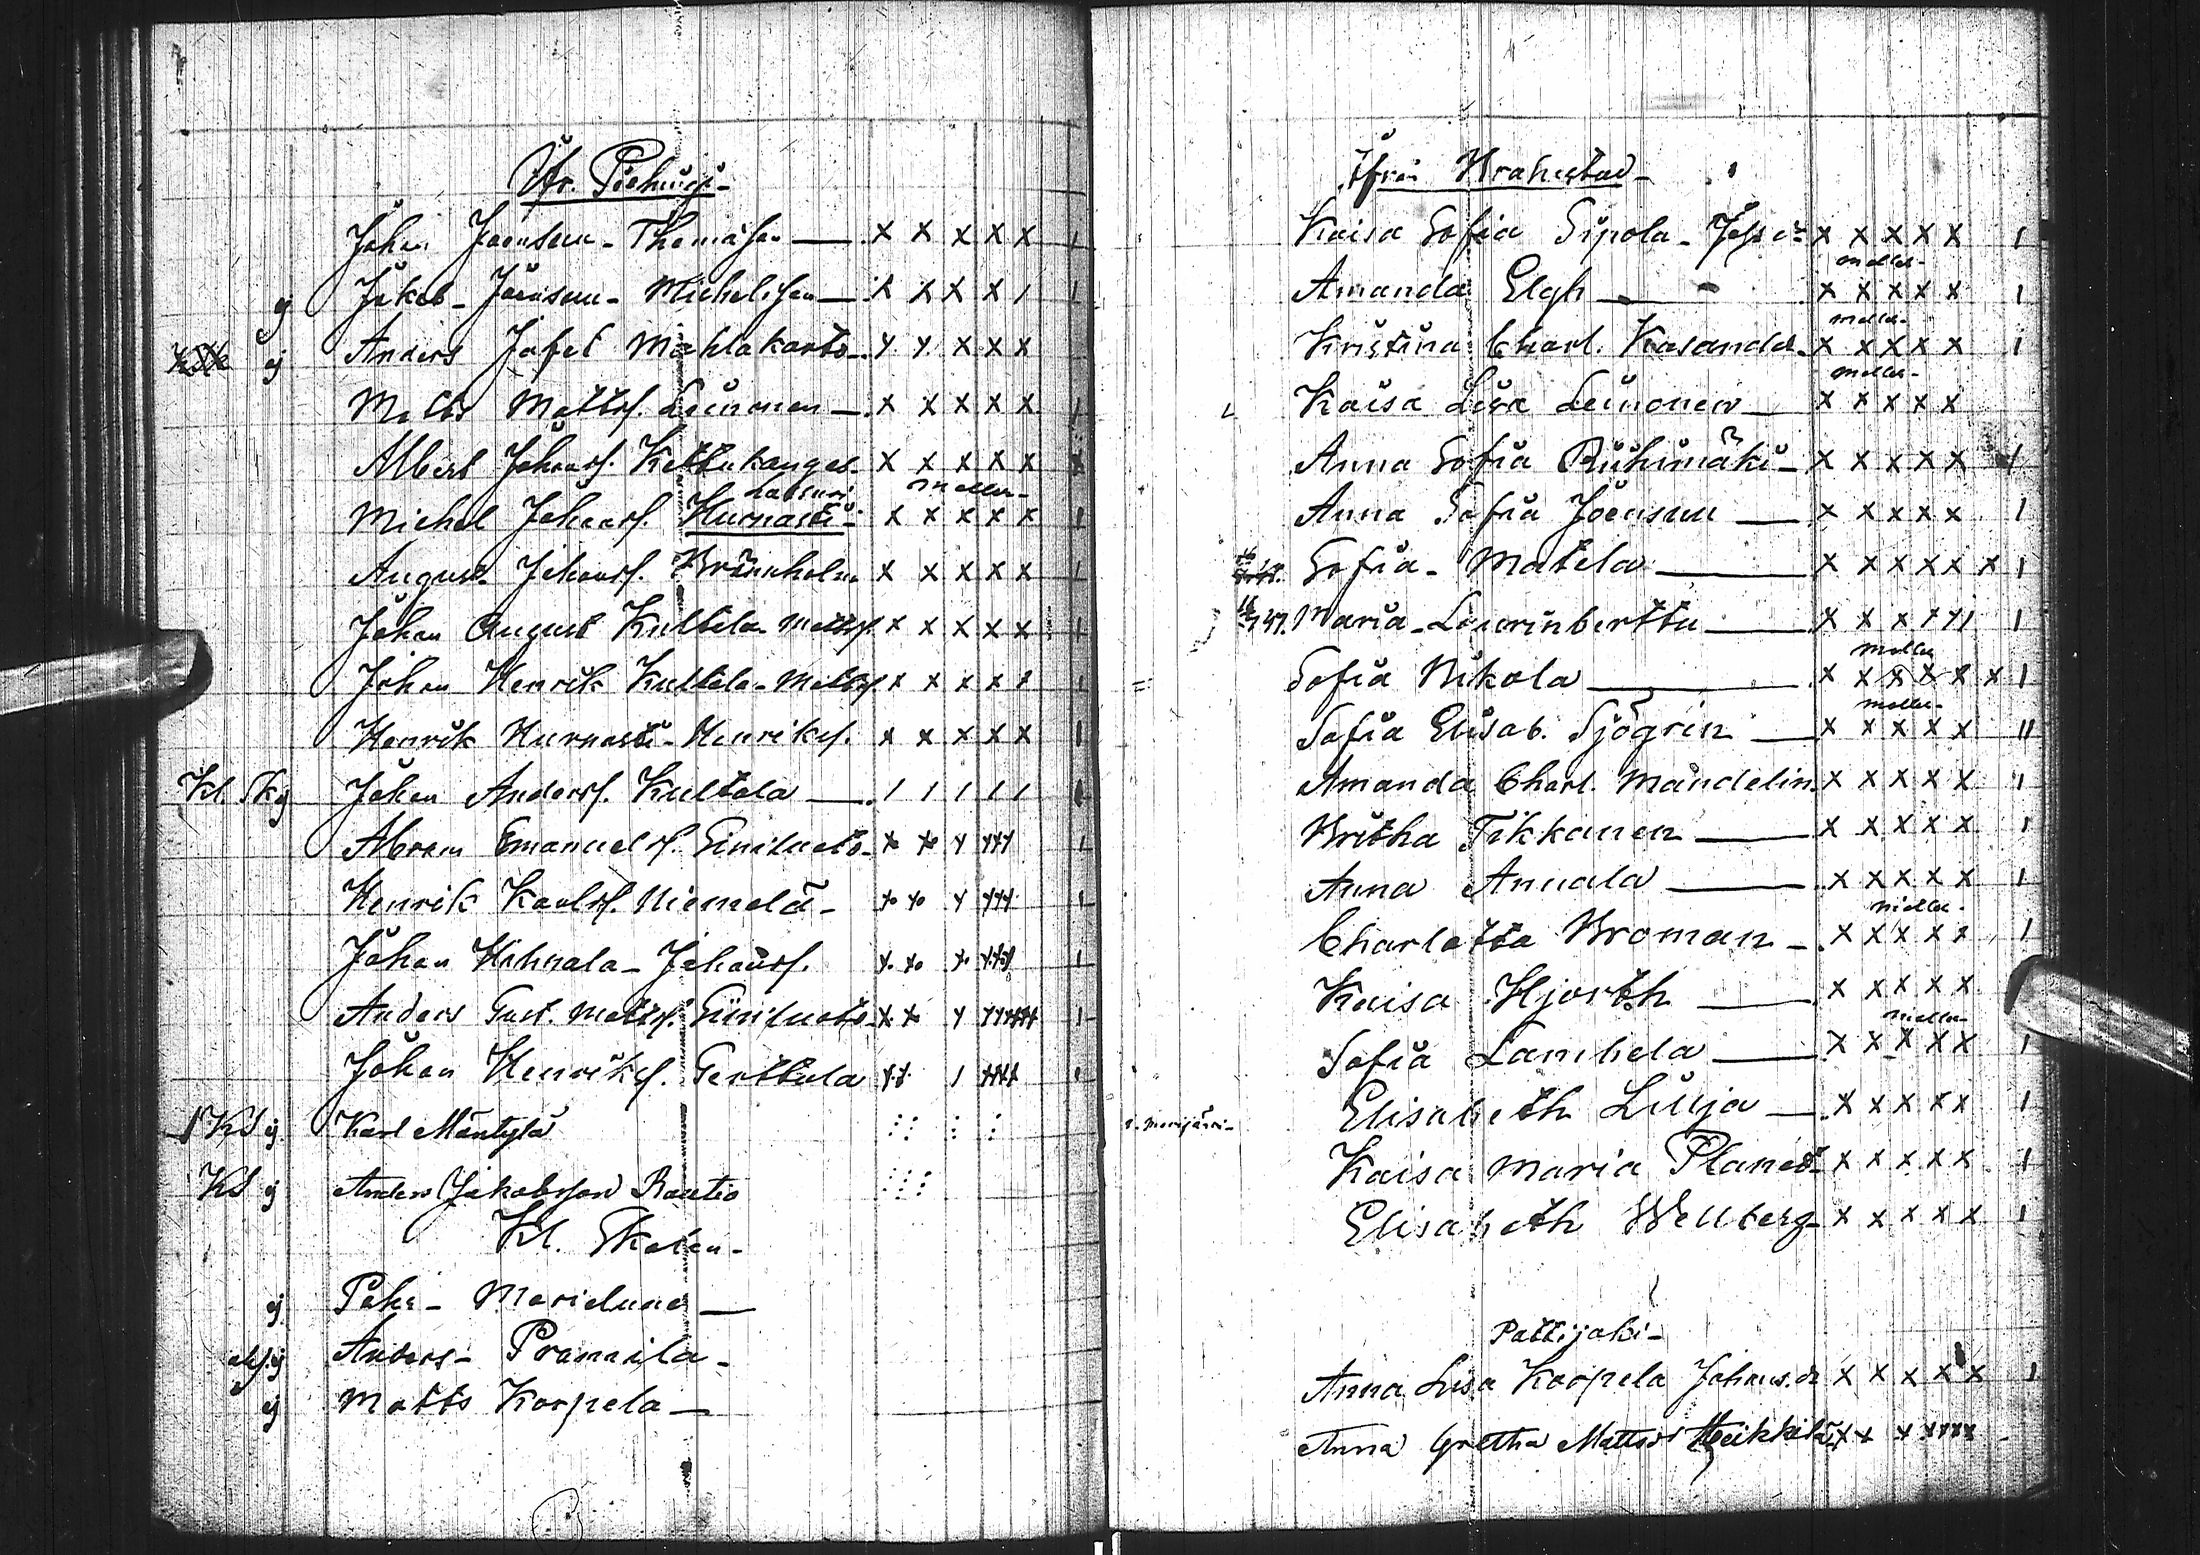 Ifr. Piehingi-
Johan Joensuu- Thomasson — x x x x x 1
g Jakob- Joensuu- Michelsson — x x x x 1 1
ej Anders Jafet Mahlakarto- x x x x x
Matts Mattss. Leinonen — x x x x x 1
Albert Johanss. Kettukangas- x x x x x x
Lassuri meller-
Michel Johanss. Hurnasti- x x x x x 1
August Johanss. Brännholm x x x x x 1
Johan August Kultala- Mattss. x x x x x 1
Johan Henrik Kultala- Mattss. x x x x x 1
Henrik Hurnasti- Henrikss. x x x x x 1
Kl. Sk ej Johan Anderss. Kultala — 1 1 1 1 1 1
Abram Emanuelss. Siniluoto- x x x xxx 1
Henrik Karlss. Niemelä- x x x xxx 1
Johan Hihnala- Johanss. x x x xxx 1
Anders Gust. Mattss. Siniluoto- x x x xxxxx 1
Johan Henrikss. Perttula x x 1 xxxx 1
KS ej Karl Mäntylä
KS ej Anders Jakobsson Rautio
Kl. Skolan-
ej Pehr- Merielunas —
ej Anders- Pramila-
ej Matts Korpela —
Ifrån Brahestad-
Kaisa Sofia Sipola- x x x x x 1
meller-
Amanda Elgh — x x x x x 1
meller-
Kristina Charl. Kasander- x x x x x 1
meller-
Kaisa Lisa Leinonen — x x x x x
Anna Sofia Riihimäki- x x x x x 1
Anna Sofia Joensuu — x x x x x 1
Sofia- Matela — x x x x x x 1
Maria- Laurinberttu — x x x x x 1 1
meller
Sofia Wikola — x x x x x x 1
meller-
Sofia Elisab. Sjögrin — x x x x x 11
Amanda Charl. Mandelin x x x x x 1
Britha Tikkanen — x x x x x 1
Anna Annala — x x x x x 1
meller-
Charlotta Broman- x x x x x 1
Kaisa Hjorth — x x x x x
meller-
Sofia Lambela — x x x x x 1
Elisabeth Lilja — x x x x x 1
Kaisa Maria Planet- x x x x x 1
Elisabeth Wellberg- x x x x x 1
Pattijoki-
Anna Lisa Korpela Johans.dr x x x x x 1
Anna Gretha Mattsdr Heikkilä x x x xxxx -